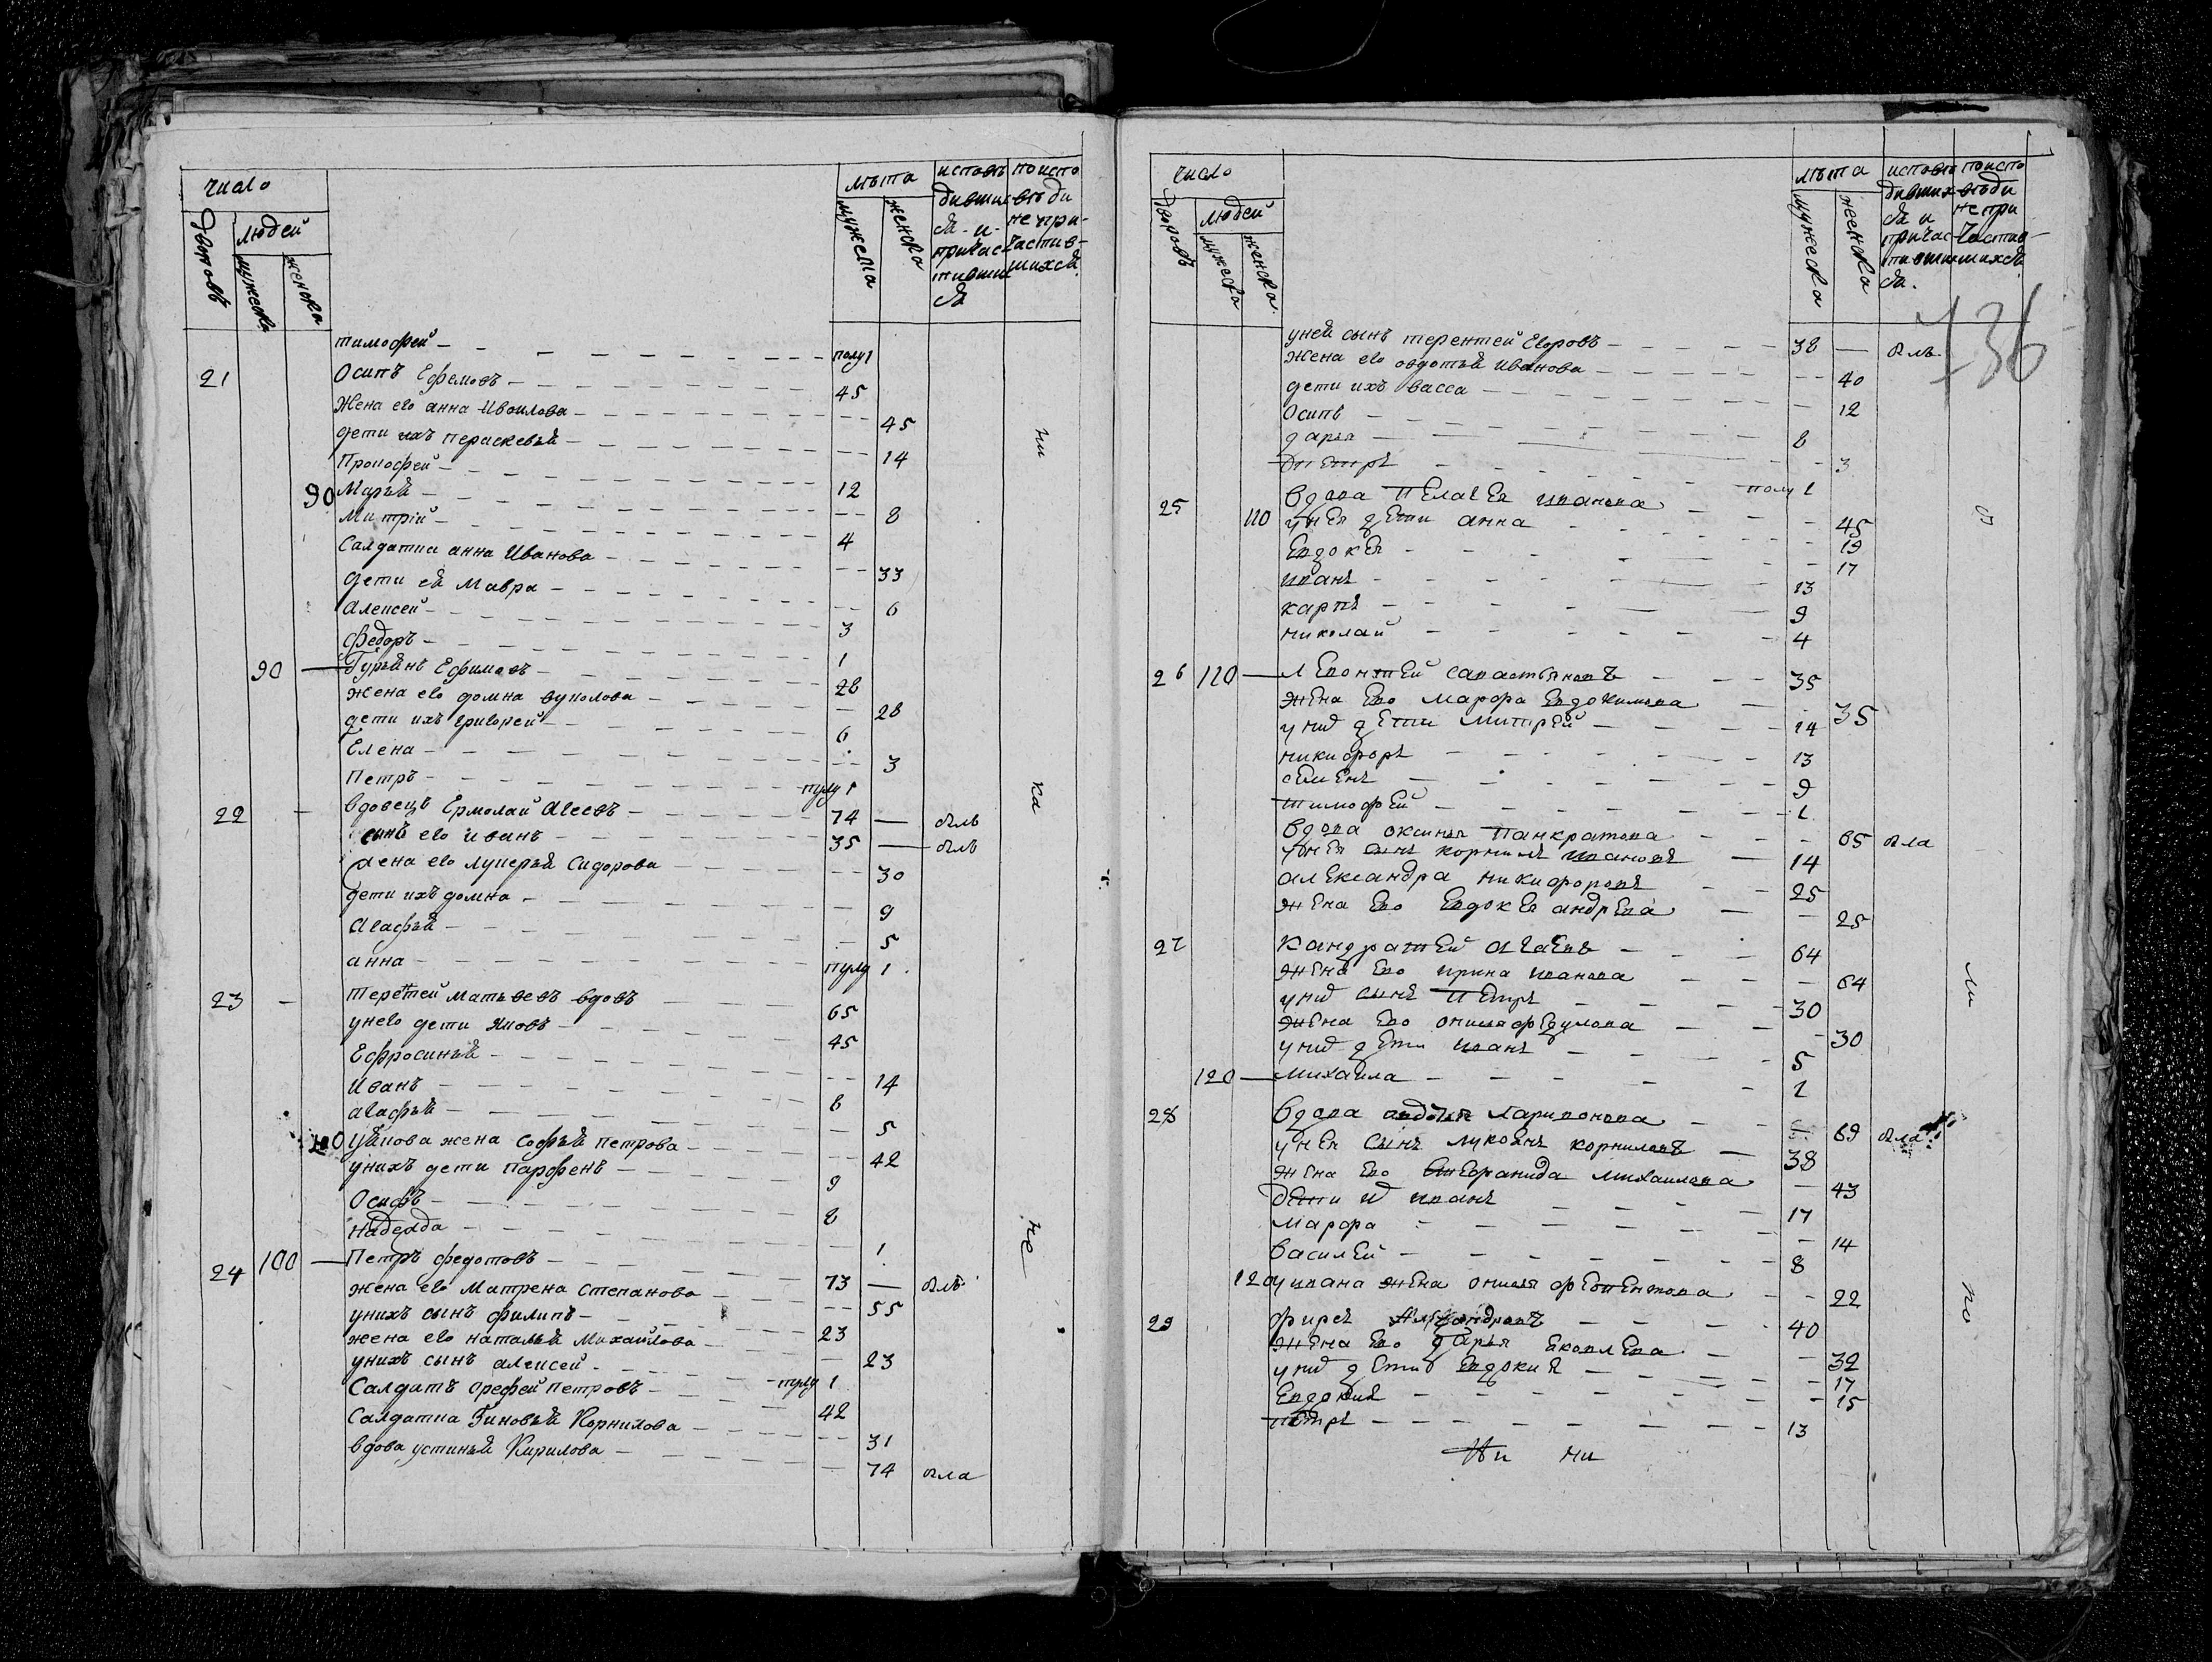 число
дворовъ
людей
мужеска
женска
лѣта
мужеска
женска
исповѣдивших ся и причастивши ся
поисповѣди не причастив-шихся
тимофей - полу 1
21 Осипъ Ефемовъ - 45
Жена его анна Ивоилова - 45
дети ихъ Пераскевья - 14
Прокофей - 12
90 Марья - 8
Митрiй - 4
Салдатка анна Иванова - 33
дети ея Мавра - 6
Алексей - 3
Федоръ - 1
90 Гурьянъ Ефимовъ - 28
жена его домна вуколова - 28
дети ихъ григорей - 6
Елена - 3
Петръ - пулу 1
22 вдовецъ Ермолай Агеевъ - 74 — былъ
сынъ его иванъ - 35 — былъ
жена его лукерья Сидорова - 30
дети ихъ домна - 9
Агафья - 5
анна - пулу 1
23 Теретей матьвевъ вдовъ - 65
унего дети Яковъ - 45
Ефросинья - 14
Иванъ - 8
агафья - 5
Уякова жена Софья петрова - 42
унихъ дети парфенъ - 9
Осифъ - 8
надежда - 1
24 100 Петръ федотовъ - 73 — былъ
жена его Матрена Степанова - 55
унихъ сынъ филипъ - 23
жена его наталья Михайлова - 23
унихъ сынъ алексей - пулу 1
Салдатъ орефей петровъ - 42
Салдатка Зиновья Корнилова - 31
вдова устинья Кирилова - 74 была
ни
ка
не
число
дворовъ
людей
мужеска
женска
лѣта
мужеска
женска
исповѣдивших ся и причастившия ся.
поисповѣди непри частив-шихся
736
уней сынъ терентей Егоровъ - 38 — былъ
Жена его овдотья Иванова - 40
дети ихъ васса - 12
Осипъ - 8
дарья - 3
Петръ - полу 1
25 вдова Пелагея иванова - 45
110 унея дети анна - 19
Евдокея - 17
иванъ - 13
карпъ - 9
николай - 4
26 110 Левонтей савастьяновъ - 35
жена ево марфа Евдокимова - 35
у них дети митрей - 14
никифоръ - 13
семенъ - 9
тимофей - 1
вдова оксинья панкратова - 65 была
унея сынъ корнилъ ивановъ - 14
александра никифоровъ - 25
жена ево Евдокея андрева - 25
27 Кандратей агаевъ - 64
жена ево ирина иванова - 64
у них сынъ Петръ - 30
жена ево онисья федулова - 30
у них дети иванъ - 5
120 михаила - 2
28 вдова авдотья ларивонова - 69 была
унея сынъ лукоянъ корниловъ - 38
жена ево михаилова - 43
дети их иванъ - 17
марфа - 14
василей - 8
120 уивана жена онисья - 22
29 фирсъ - 40
жена ево дарья яковлева - 32
у них дети Евдокия - 17
Евдокия - 15
петръ - 13
ни